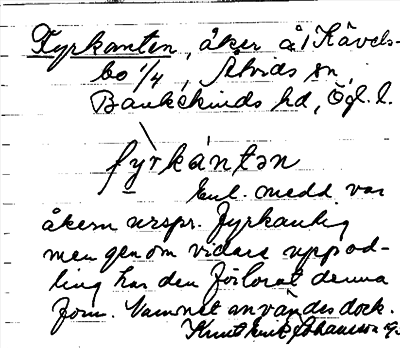 Fyrkanten, åker å 1 Kävels-
bo 1/4, Åtvids sn,
Bankekinds hd, Ögl. l.
fyrkántən
Enl. medd. var
åkern urspr. fyrkantig
men genom vidare uppod-
ling har den förlorat denna
form. Namnet användes dock.
Knut Erik Johansson